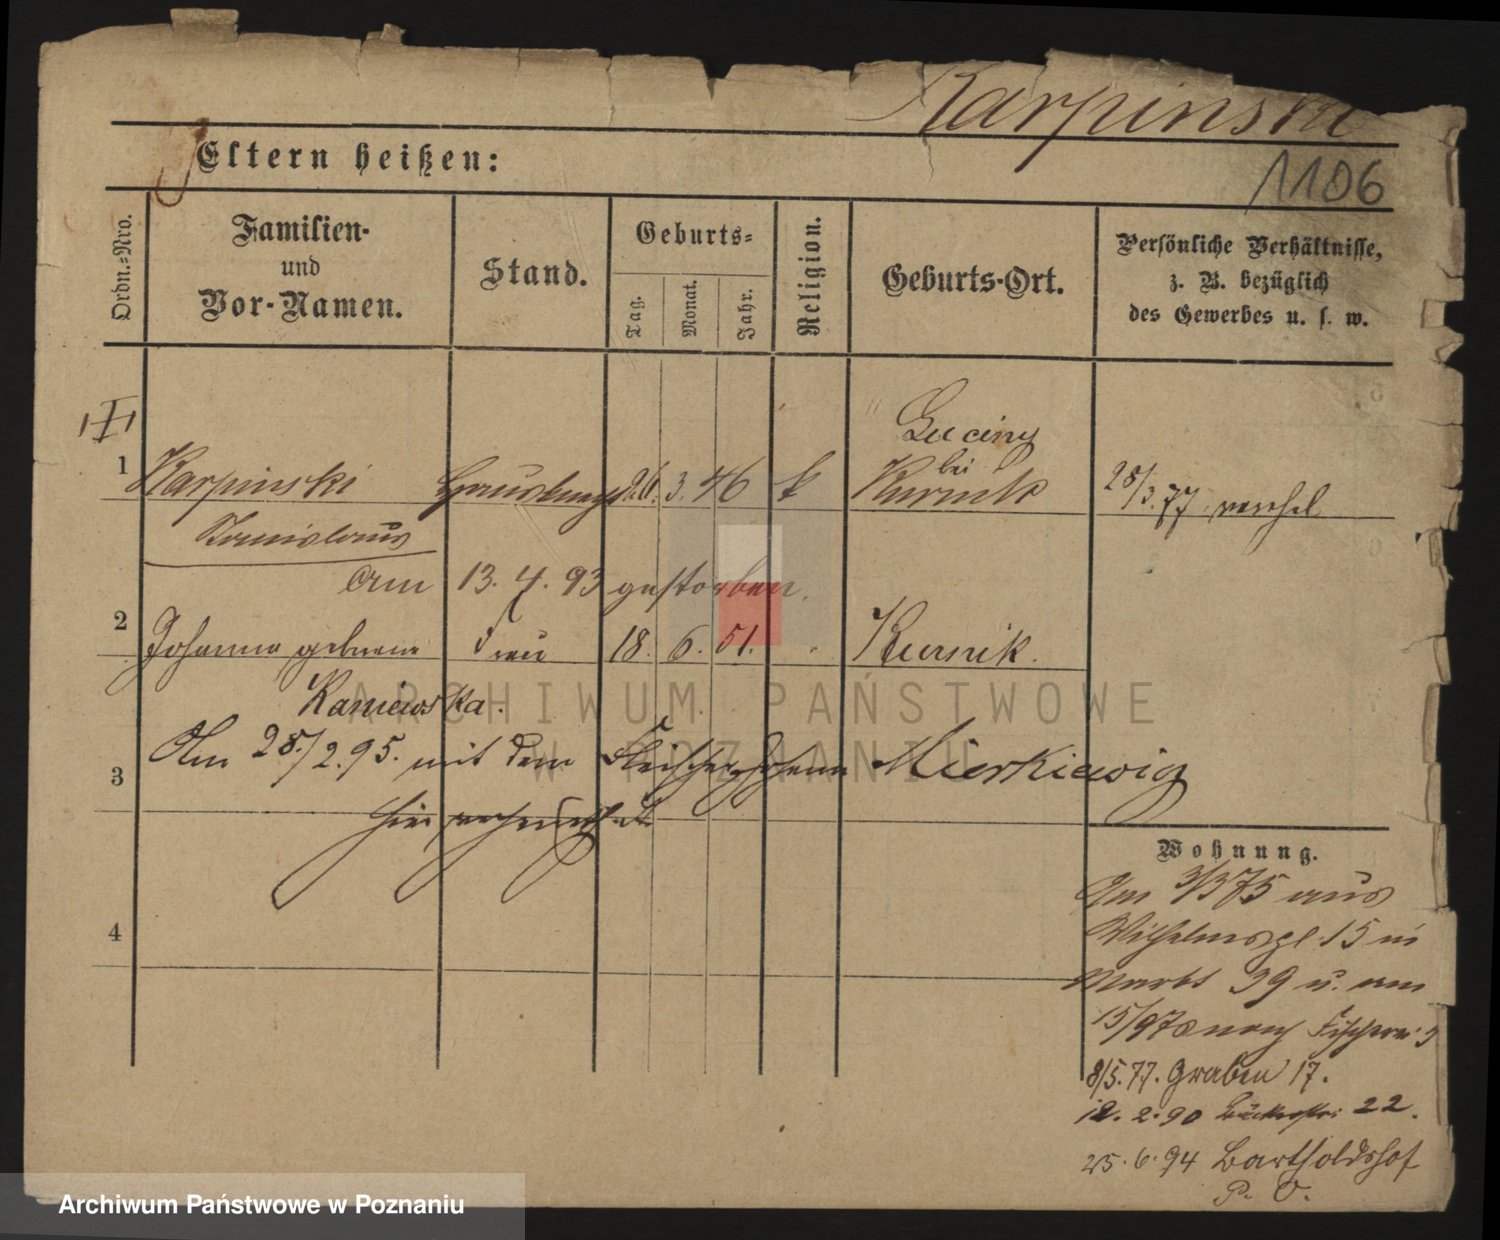 Karpinski
1106
Eltern heißen:
Ordn.-Nro.
Familien-
und
Vor-Namen.
Stand.
Geburts-
Tag.
Monat.
Jahr.
Religion.
Geburts-Ort.
Persönliche Verhältnisse,
z. B. bezüglich
des Gewerbes u. s. w.
Luciny
bei
1 Karpinski 26. 3. 46 k Kurnik 28/3.77
Stanislaus
am 13. 4. 93 gestorben.
2 Johanna geborene Frau 18. 6. 51. Kurnik.
Kaniewska.
3 Am 28./2.95. mit dem Fleischer Johann Mierkiewicz
hier verheirathet
4
Wohnung.
Am 3/3 75 aus
Wilhelmspl. 15 in
Markt 39 u. am
15/9 nach Fischerei 3
8/5.77. Graben 17.
12. 2. 90 22.
25. 6. 94 Bartholdshof
P. O.
ARCHIWUM PAŃSTWOWE
W POZNANIU
Archiwum Państwowe w Poznaniu